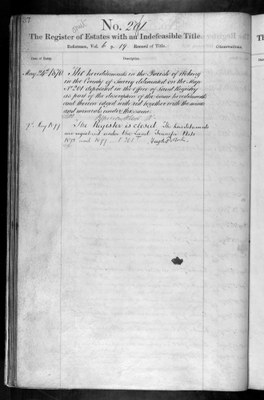 No. 201
The Register of Estates with an Indefeasible Title.
Reference, Vol. 6 p. 19 Record of Title.
Date of Entry. Description. Observations.
May 24th 1870 The hereditaments in the Parish of Woking
in the County of Surrey delineated on the Map
No. 201 deposited in the office of Land Registry
as part of the description of the same hereditaments
and thereon edged with red together with the mines
and minerals under the same.
9 Aug 1899 The Register is closed. The hereditaments
are registered under the Land Transfer Acts
1875 and 1897